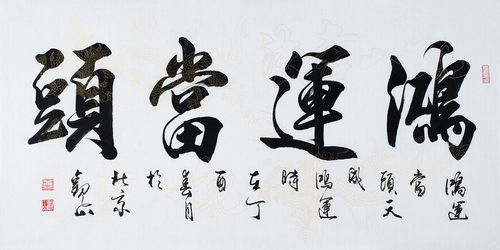 鴻運當頭
鴻運
當
頭天
鴻運
時
在丁
酉
春月
於
北京